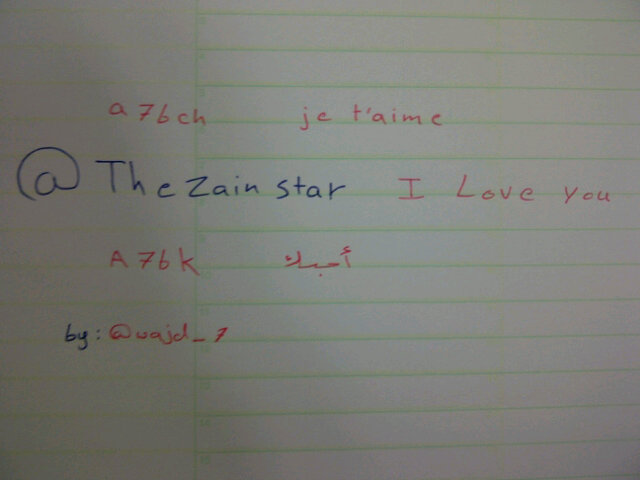 a76ch je t'aime
@TheZainstar I Love you
A76k أحبك
by: @wajd_7